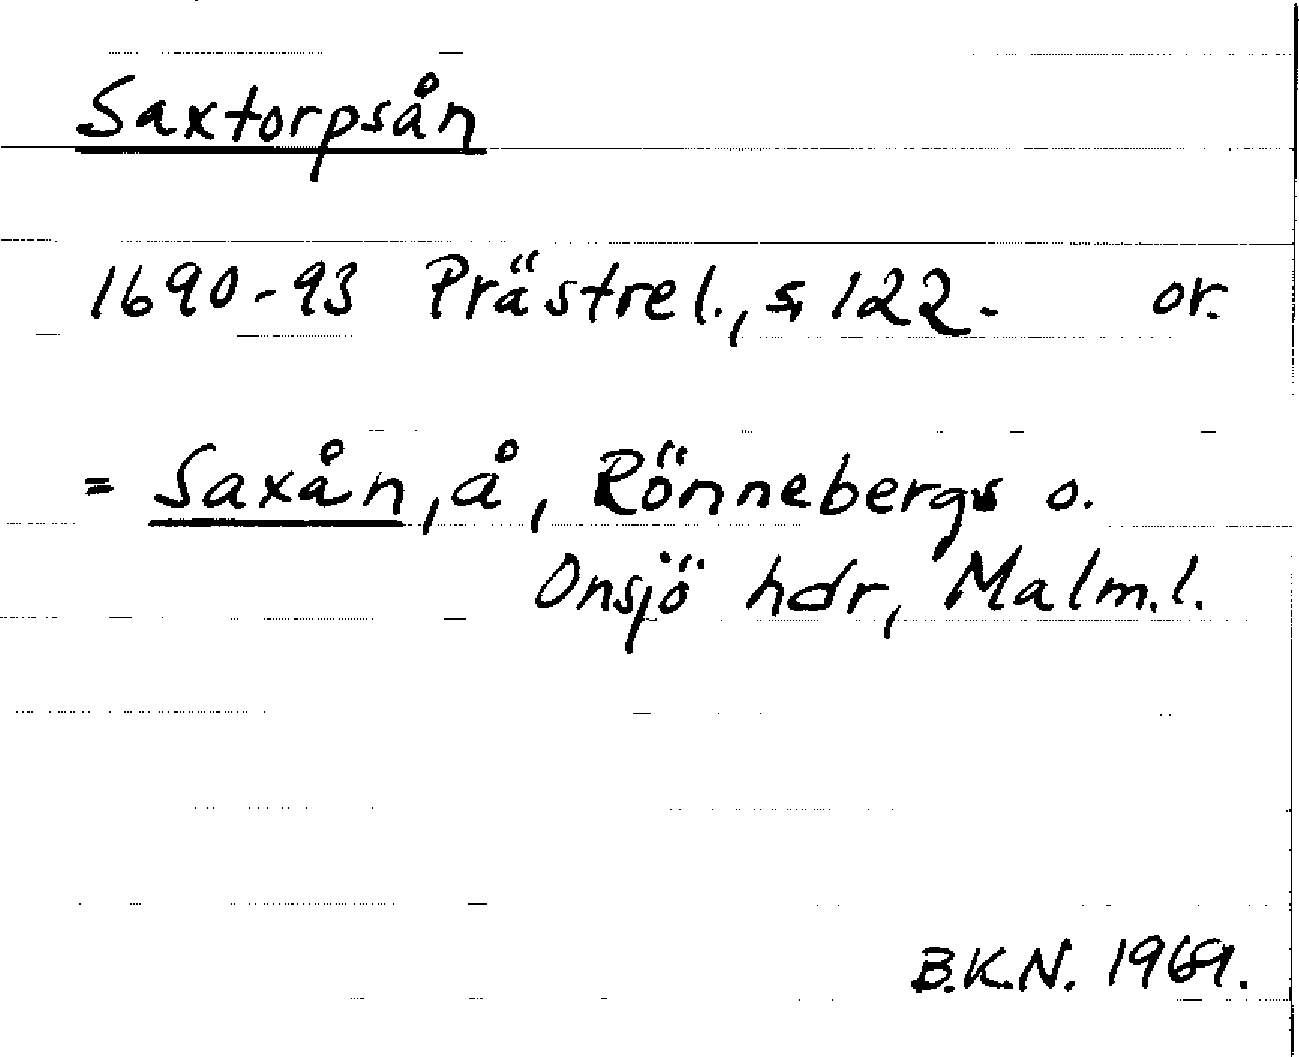 Saxtorpsån
1690-93 Prästrel., s. 122. or.
= Saxån, å, Rönnebergs o.
Onsjö hdr, Malm.l.
B.K.N. 1969.